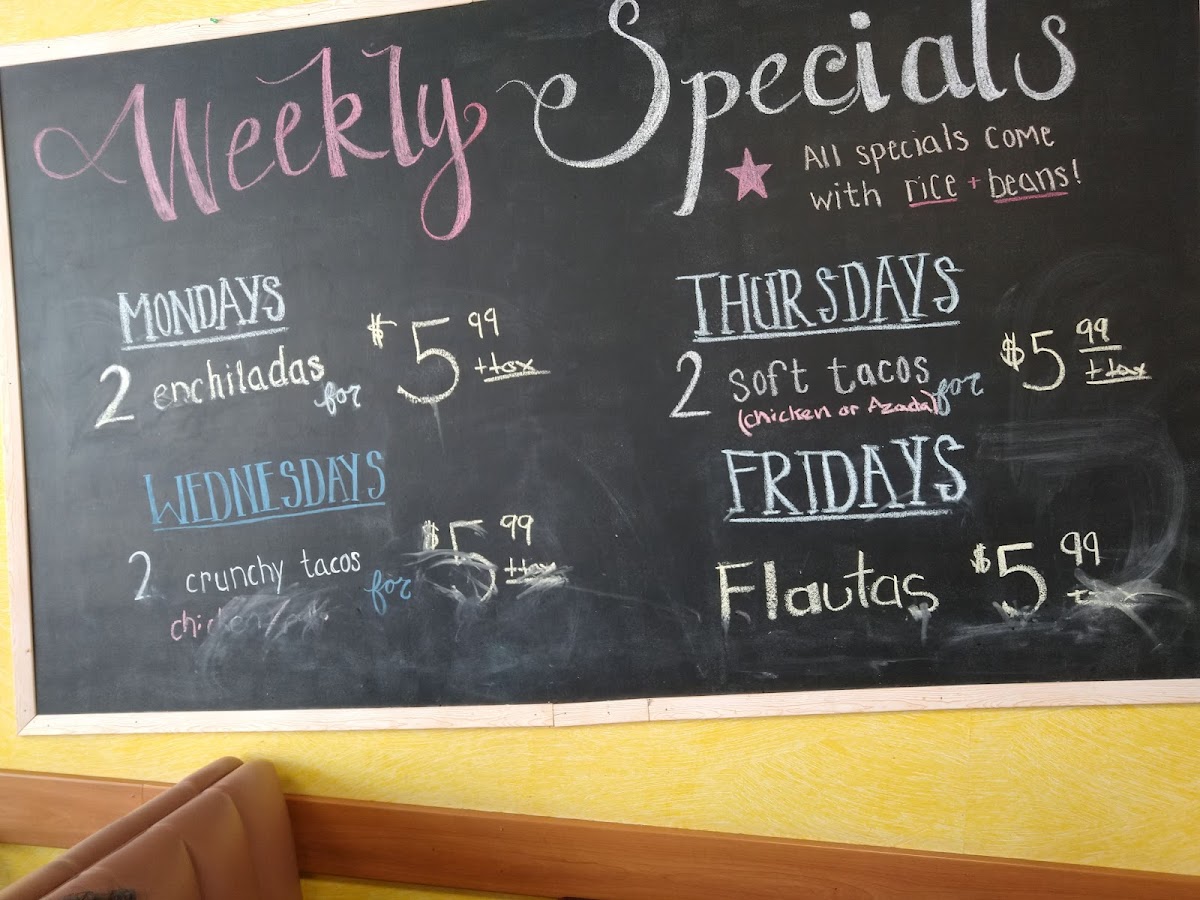 Weekly Specials
All specials come
with rice + beans!
MONDAYS
2 enchiladas for $5 99 +tax
WEDNESDAYS
2 crunchy tacos for $5 99 +tax
THURSDAYS
2 soft tacos for $5 99 +tax
(chicken or Azada)
FRIDAYS
Flautas $5 99